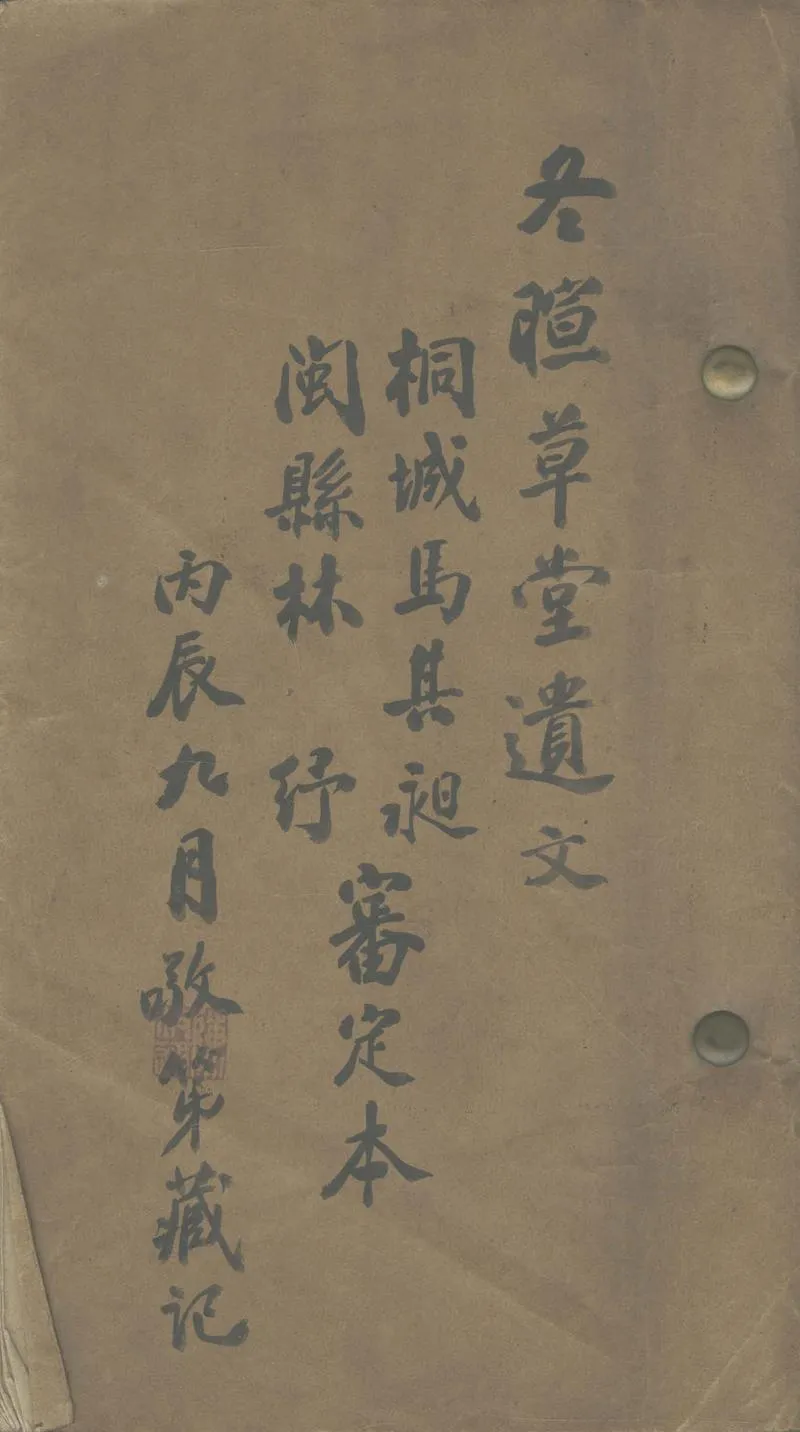 冬暄草堂遺文
桐城馬其昶
閩縣林 紓
審定本
丙辰九月敬第藏記